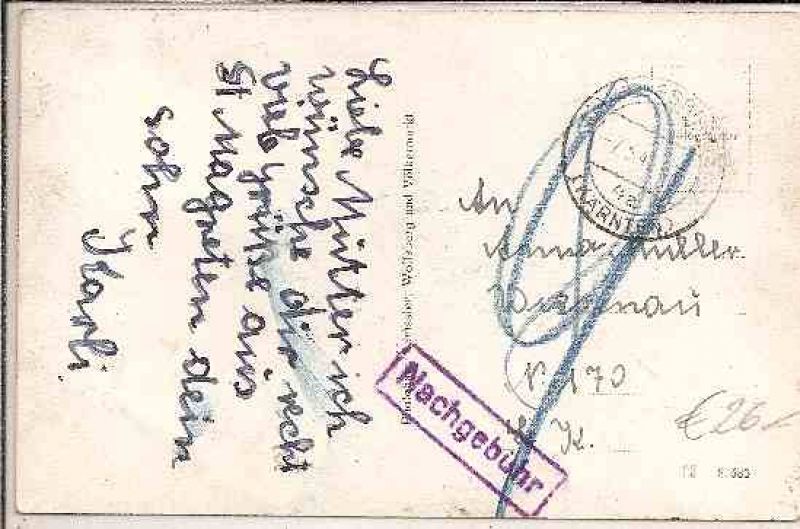 Liebe Mutter ich
wünsche dir recht
viele grüße aus
St Magreten dein
sohn
Karli.
Wolfsberg und Völkermarkt
(KÄRNTEN)
An
Anna Müller.
N. 170
Nachgebühr
€26.-